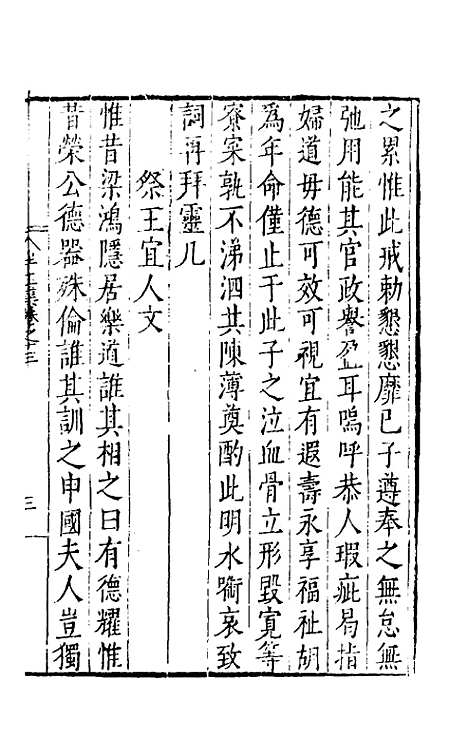 之累惟此戒勅懇懇靡已子遵奉之無怠無
弛用能其官政譽盈耳嗚呼恭人瑕疵曷指
婦道毋德可效可視宜有遐壽永享福祉胡
為年命僅止于此子之泣血骨立形毀寬等
寮寀孰不涕泗其陳薄奠酌此明水銜哀致
詞再拜靈几
祭王宜人文
惟昔梁鴻隱居樂道誰其相之曰有德耀惟
昔榮公德器殊倫誰其訓之申國夫人豈獨
卷之三
三